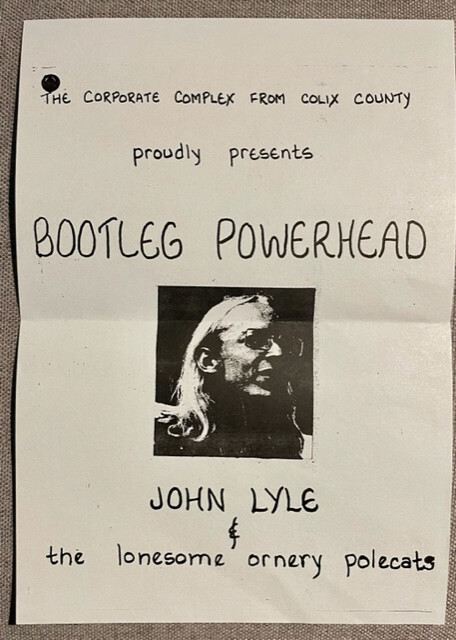 THE CORPORATE COMPLEX FROM COLIX COUNTY
proudly presents
BOOTLEG POWERHEAD
JOHN LYLE
&
the lonesome ornery polecats